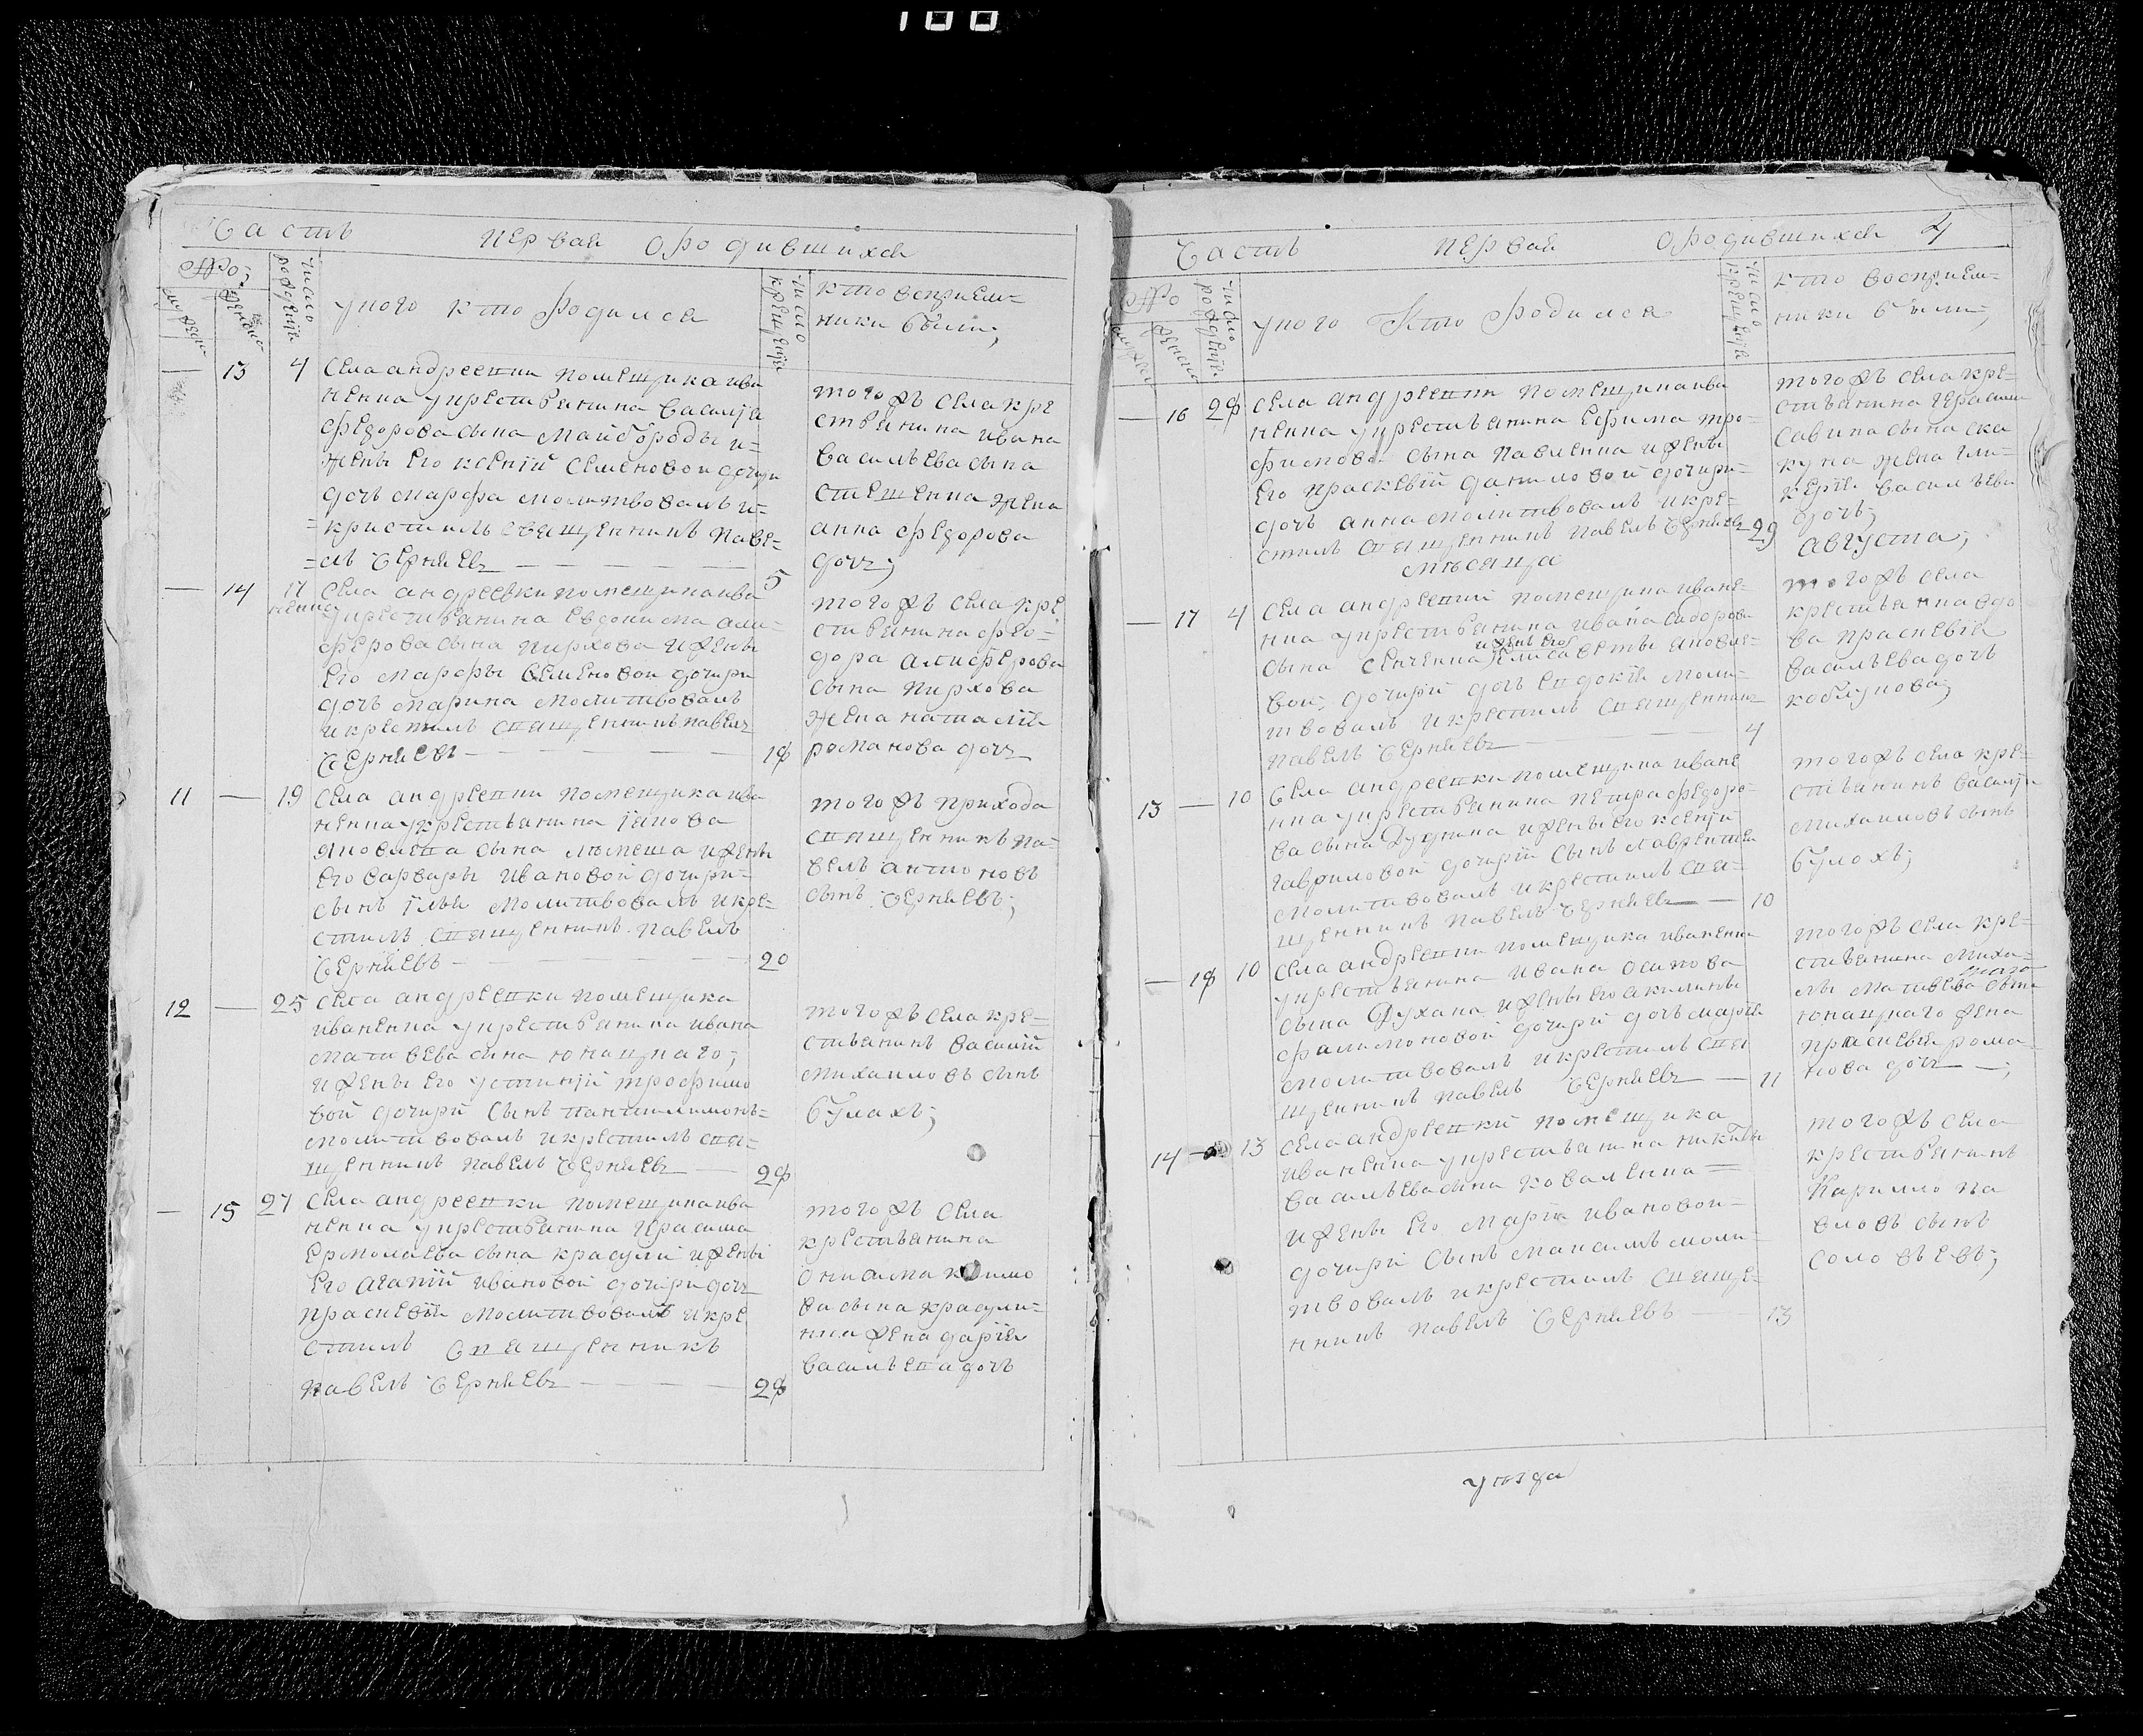 188
Часть первая о родившихся
число рождения
у кого кто родился
число крещения
кто восприем=
ники были;
— 13 4 Села андреевки помещика ива
ненка у крестьянина василия
федорова сына майбороды и=
жены его ксении семеновой дочери
дочь марфа молитвовалъ и=
=крестилъ священникъ паве=
=лъ Черняевъ — — — 5
тогожъ села кре
стьянина ивана
васильева сына
стешенка жена
анна федорова
дочь;
— 14 17 Села андреевки помещика ива
ненка у крестьянина евдокима али=
ферова сына пирхова и жены
его марфы семеновой дочери
дочь марина молитвовалъ
и крестилъ священникъ павелъ
Черняевъ — — — 18
тогожъ села кре
стьянина фео=
дора алиферова
сына пирхова
жена наталия
романова дочь
11 — 19 Села андреевки помещика ива
ненка у крестьянина іякова
яковлева сына лемеша и жены
его варвары ивановой дочери=
сынъ илья молитвовалъ и кре=
стилъ священникъ павелъ
Черняевъ — — — 20
тогожъ прихода
священникъ па=
велъ антоновъ
сынъ Черняевъ;
12 — 25 Села андреевки помещика
иваненка у крестьянина ивана
матвеева сына юнацкаго;
и жены его устинии трофимо
вой дочери сынъ пантилимонъ=
молитвовалъ и крестилъ свя=
щенникъ павелъ Черняевъ — 28
тогожъ села кре=
стьянинъ василий
михаиловъ сынъ
булахъ;
— 15 27 Села андреевки помещика ива
ненка у крестьянина
ермолаева сына красули и жены
его агапии ивановой дочери дочь
праскевия молитвовалъ и кре
стилъ священникъ
павелъ Черняевъ — — — 28
тогожъ села
крестьянина
онисима климо
ва сына красули=
жена дария
васильева дочь
Часть первая о родившихся 4
число рождения
у кого Кто родился
число крещения
кто восприем=
ники были;
— 16 28 села андреевки помещика ива
ненка у крестьянина ефима тро=
фимова сына павленка и жены
его праскевии даниловой дочери=
дочь анна молитвовалъ и кре=
стилъ священникъ павелъ Черняевъ 29
тогожъ села кре=
стьянина герасим
савина сына ска
куна жена гли=
керия васильева
дочь;
месяца августа;
— 17 4 Села андреевки помещика иване=
нка у крестьянина ивана сидорова
и жены его
сына сенченка елисаветы яковле=
вой; дочери дочь евдокия моли=
твовалъ и крестилъ священникъ
павелъ Черняевъ — 4
тогожъ села
крестьянка вдо
ва праскевия
васильева дочь
коблунова;
13 — 10 Села андреевки помещика иване
нка у крестьянина петра федоро=
ва сына Дудника и жены его ксении
гавриловой дочери сынъ лаврентий
молитвовалъ и крестилъ свя=
щенникъ павелъ Черняевъ — 10
тогожъ села кре=
стьянинъ василий
михаиловъ сынъ
булахъ;
— 18 10 Села андреевки помещика иваненка
у крестьянина ивана осипова
сына Духана и жены его акилины
филимоновой дочери дочь мария
молитвовалъ и крестилъ свя
щенникъ павелъ Черняевъ — 11
тогожъ села кре=
стьянина миха=
лы матвеева сына
юнацкаго жена
праскевия рома=
нова дочь —;
14 — 13 Села андреевки помещика
иваненка у крестьянина никиты
васильева сына коваленка=
и жены его марии ивановой=
дочери сынъ максимъ моли=
твовалъ и крестилъ священ=
никъ павелъ Черняевъ — 13
тогожъ села
крестьянинъ
Карилло па
вловъ сынъ
соловьевъ;
уезда